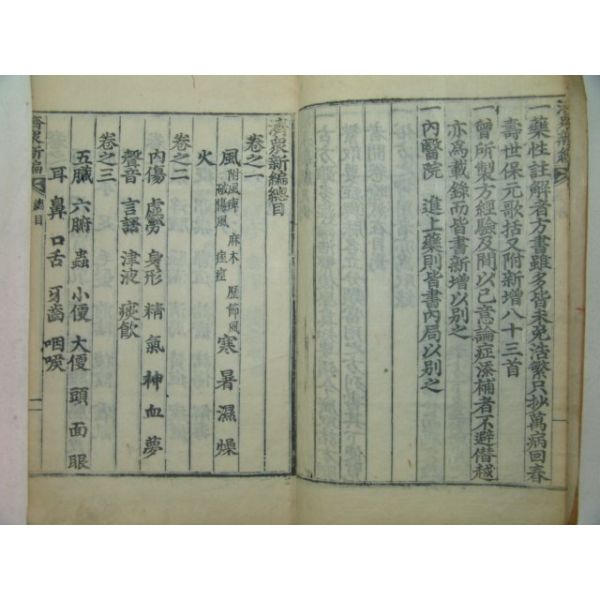 一藥性註解者方書雖多皆未免浩繁只抄萬病回春
壽世保元歌括又附新增八十三首
一曾所製方經驗及間以己意論症添補者不避僭越
亦為載錄而皆書新增以別之
一內醫院進上藥則皆書內局以別之
濟眾新編總目
卷之一
風附風痺 麻木 歷節風 破傷風 寒 暑 濕 燥
火
卷之二
內傷 虛勞 身形 精 氣 神 血 夢
聲音 言語 津液 痰飮
卷之三
五臟 六腑 蟲 小便 大便 頭 面 眼
耳 鼻 口舌 牙齒 咽喉
濟眾新編 總目